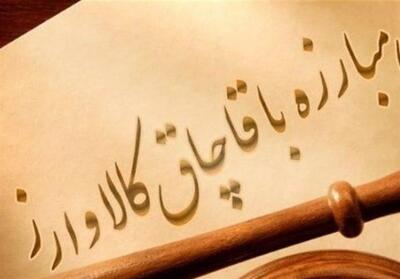 مبارزه با قاچاق کالا و ارز